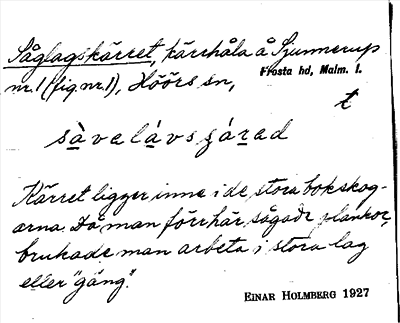 Såglagskärret, kärrhåla å Sjunnerup
nr. 1 (fig. nr. 1), Höörs sn,
Frosta hd, Malm. l.
t
sàvelávsʒárad
Kärret ligger inne i de stora bokskog-
arna. Då man förr här sågade plankor,
brukade man arbeta i stora lag
eller "gäng".
EINAR HOLMBERG 1927